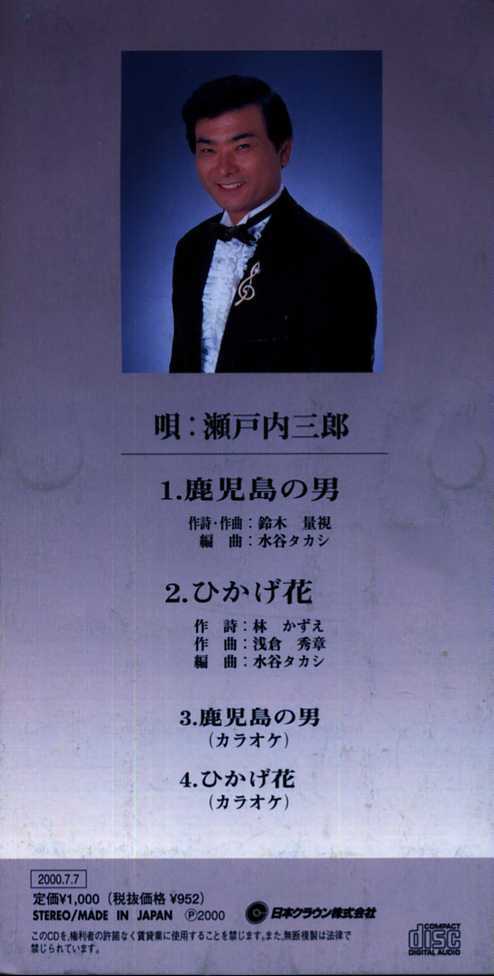 唄：瀬戸内三郎
1.鹿児島の男
作詩・作曲：鈴木　量視
編　曲：水谷タカシ
2.ひかげ花
作　詩：林　かずえ
作　曲：浅倉　秀章
編　曲：水谷タカシ
3.鹿児島の男
（カラオケ）
4.ひかげ花
（カラオケ）
2000.7.7
定価¥1,000（税抜価格 ¥952）
STEREO/MADE IN JAPAN Ⓟ2000 日本クラウン株式会社
このCDを、権利者の許諾なく賃貸業に使用することを禁じます。また、無断複製は法律で
禁じられています。
COMPACT
disc
DIGITAL AUDIO